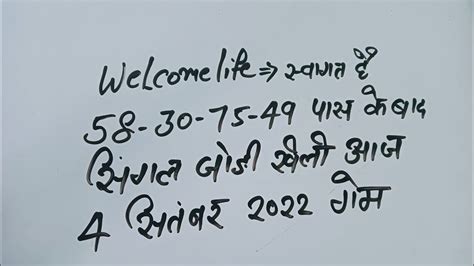 Welcome life ⇒ स्वागत है
58-30-75-49 पास के बाद
सिंगल जोडी खेलो आज
4 सितंबर 2022 गेम